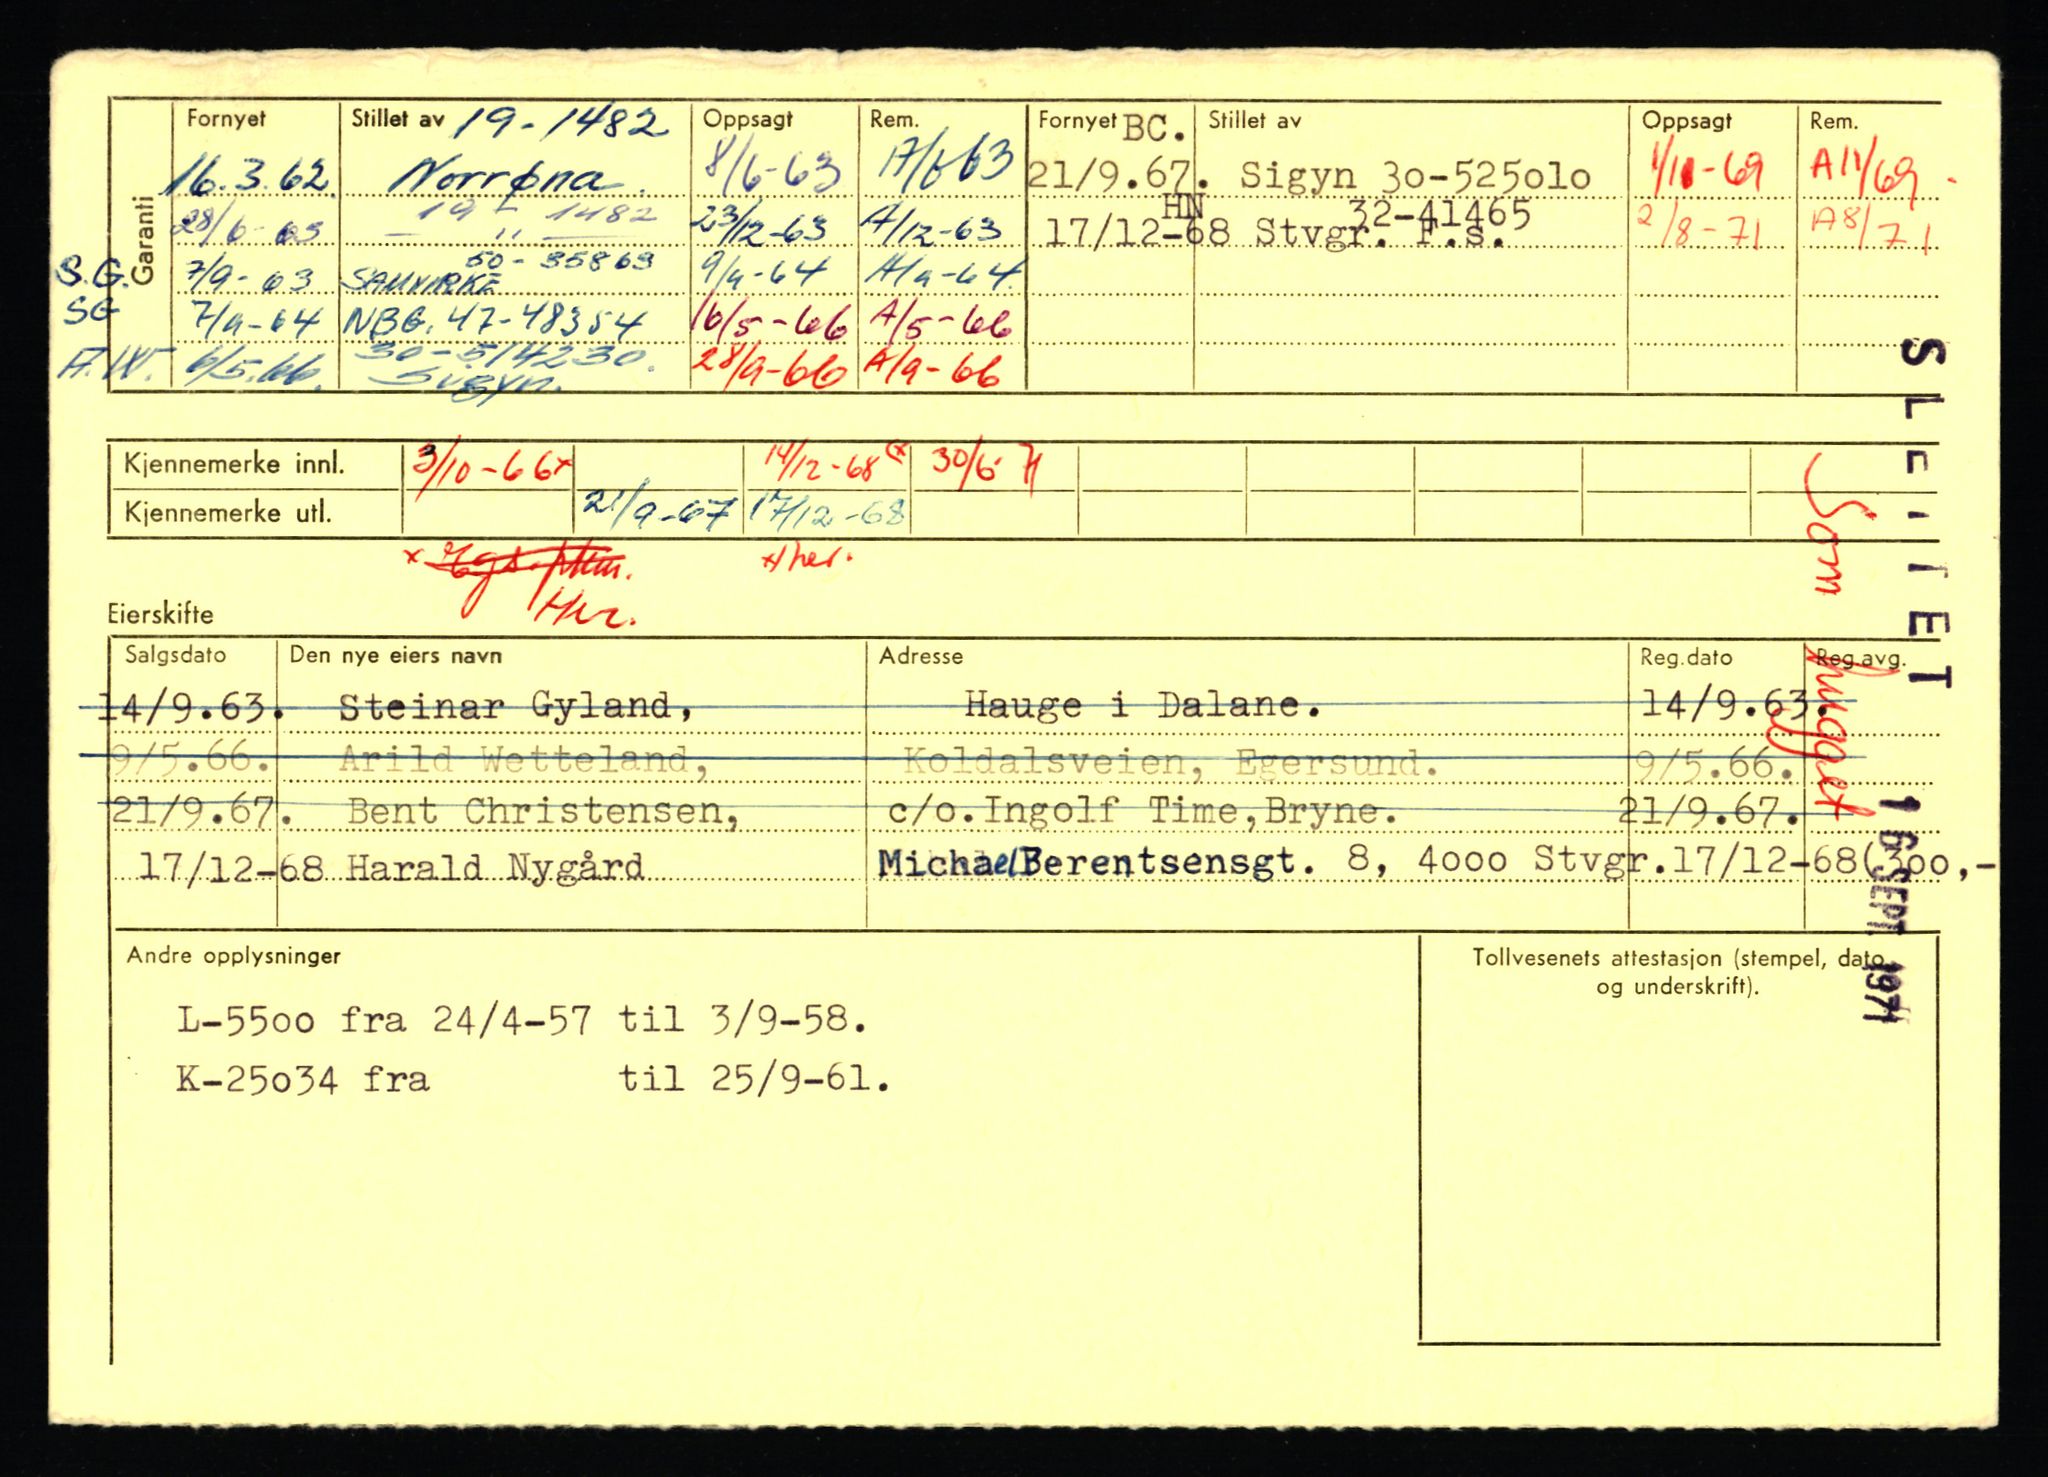 Garanti
Fornyet Stillet av 19-1482 Oppsagt Rem. Fornyet BC. Stillet av Oppsagt Rem.
16.3.62 Norrøna 8/6-63 A/6-63 21/9.67. Sigyn 3o-525o1o 1/11-69 A11/69.
28/6-63 — 19 - 1482 — " — 23/12-63 A/12-63 17/12-68 HN Stvgr. F.s. 32-41465 2/8-71 A8/71
S.G. 7/9-63 SAMVIRKE 50-35863 9/9-64 A/9-64.
SG 7/9-64 NBG. 47-48354 16/5-66 A/5-66
A.W. 6/5.66. 30-514230. Sigyn. 28/9-66 A/9-66
Kjennemerke innl. 3/10-66x 14/12-68 (x 30/6-71
Kjennemerke utl. 21/9-67 17/12-68
x
Her.
x her.
Eierskifte
Salgsdato Den nye eiers navn Adresse Reg.dato Reg.avg.
14/9.63. Steinar Gyland, Hauge i Dalane. 14/9.63.
9/5.66. Arild Wetteland, Koldalsveien, Egersund. 9/5.66.
21/9.67. Bent Christensen, c/o.Ingolf Time,Bryne. 21/9.67.
17/12-68 Harald Nygård Michael Berentsensgt. 8, 4ooo Stvgr. 17/12-68(3oo,-
SLETTET
Som hugget
16 SEPT 1971
Andre opplysninger
L-55oo fra 24/4-57 til 3/9-58.
K-25o34 fra til 25/9-61.
Tollvesenets attestasjon (stempel, dato
og underskrift).